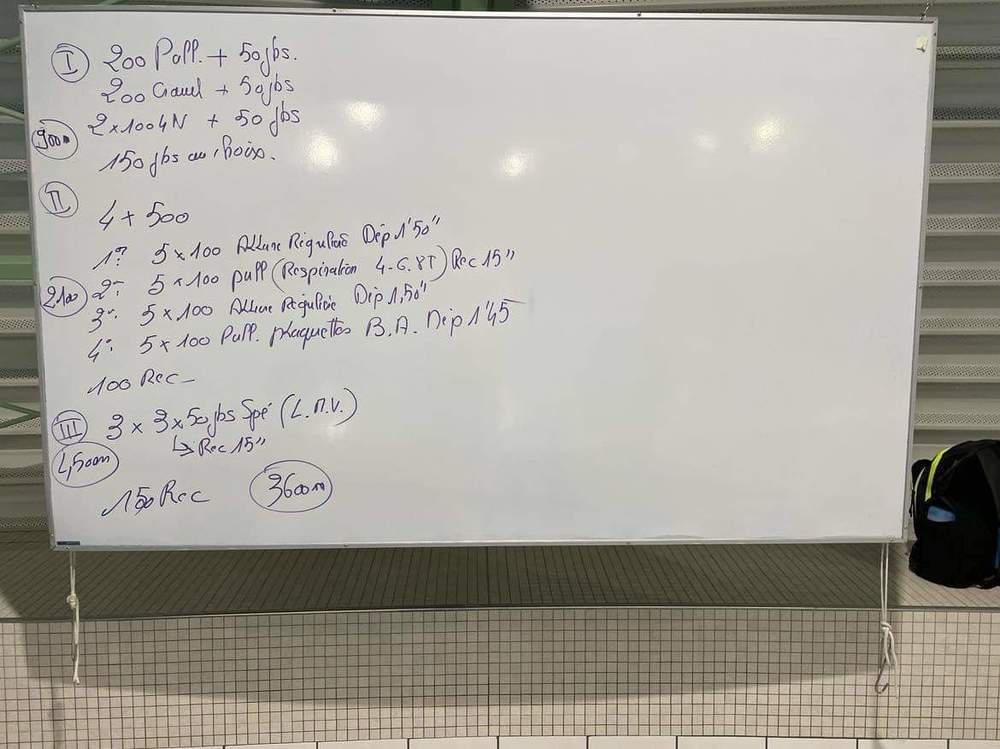 I 200 Pull. + 50 jbs.
200 Crawl + 50 jbs
900m 2 x 100 4N + 50 jbs
150 jbs au choix.
II
4 x 500
1° 5 x 100 Allure Régulière Dép 1'50"
2100 2° 5 x 100 pull (Respiration 4.6.8T) Rec 15"
3° 5 x 100 Allure Régulière Dép 1,50"
4° 5 x 100 Pull. plaquettes B.A. Dép 1'45
100 Rec
III 3 x 3 x 50 jbs Spé (L.M.V.)
↳ Rec 15"
4,500m
150 Rec 3600m